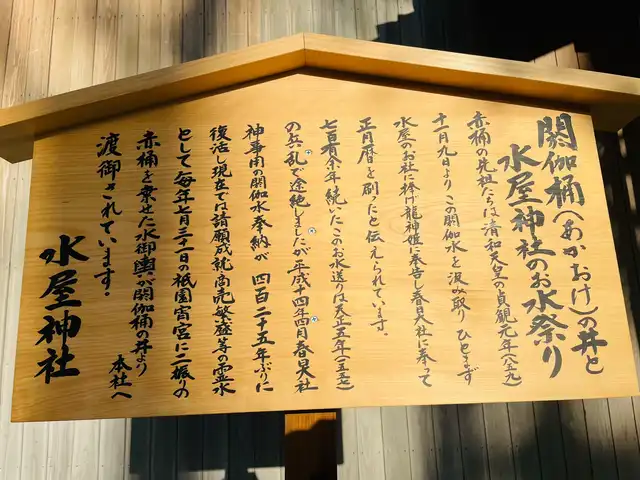 閼伽桶(あかおけ)の井と
水屋神社のお水祭り
赤桶の先祖たちは清和天皇の貞観元年(八五九)
十一月九日よりこの閼伽水を汲み取りひとまず
水屋のお社に捧げ龍神姫に奉告し春日大社に奉って
正月暦を刷ったと伝えられています。
七百有余年続いたこのお水送りは天正五年(一五七七)
の兵乱で途絶しましたが平成十四年四月春日大社
神事用の閼伽水奉納が四百二十五年ぶりに
復活し現在では諸願成就商売繁盛等の霊水
として毎年七月三十一日の祇園宵宮に二振りの
赤桶を乗せた水御輿が閼伽桶の井より本社へ
渡御されています。
水屋神社